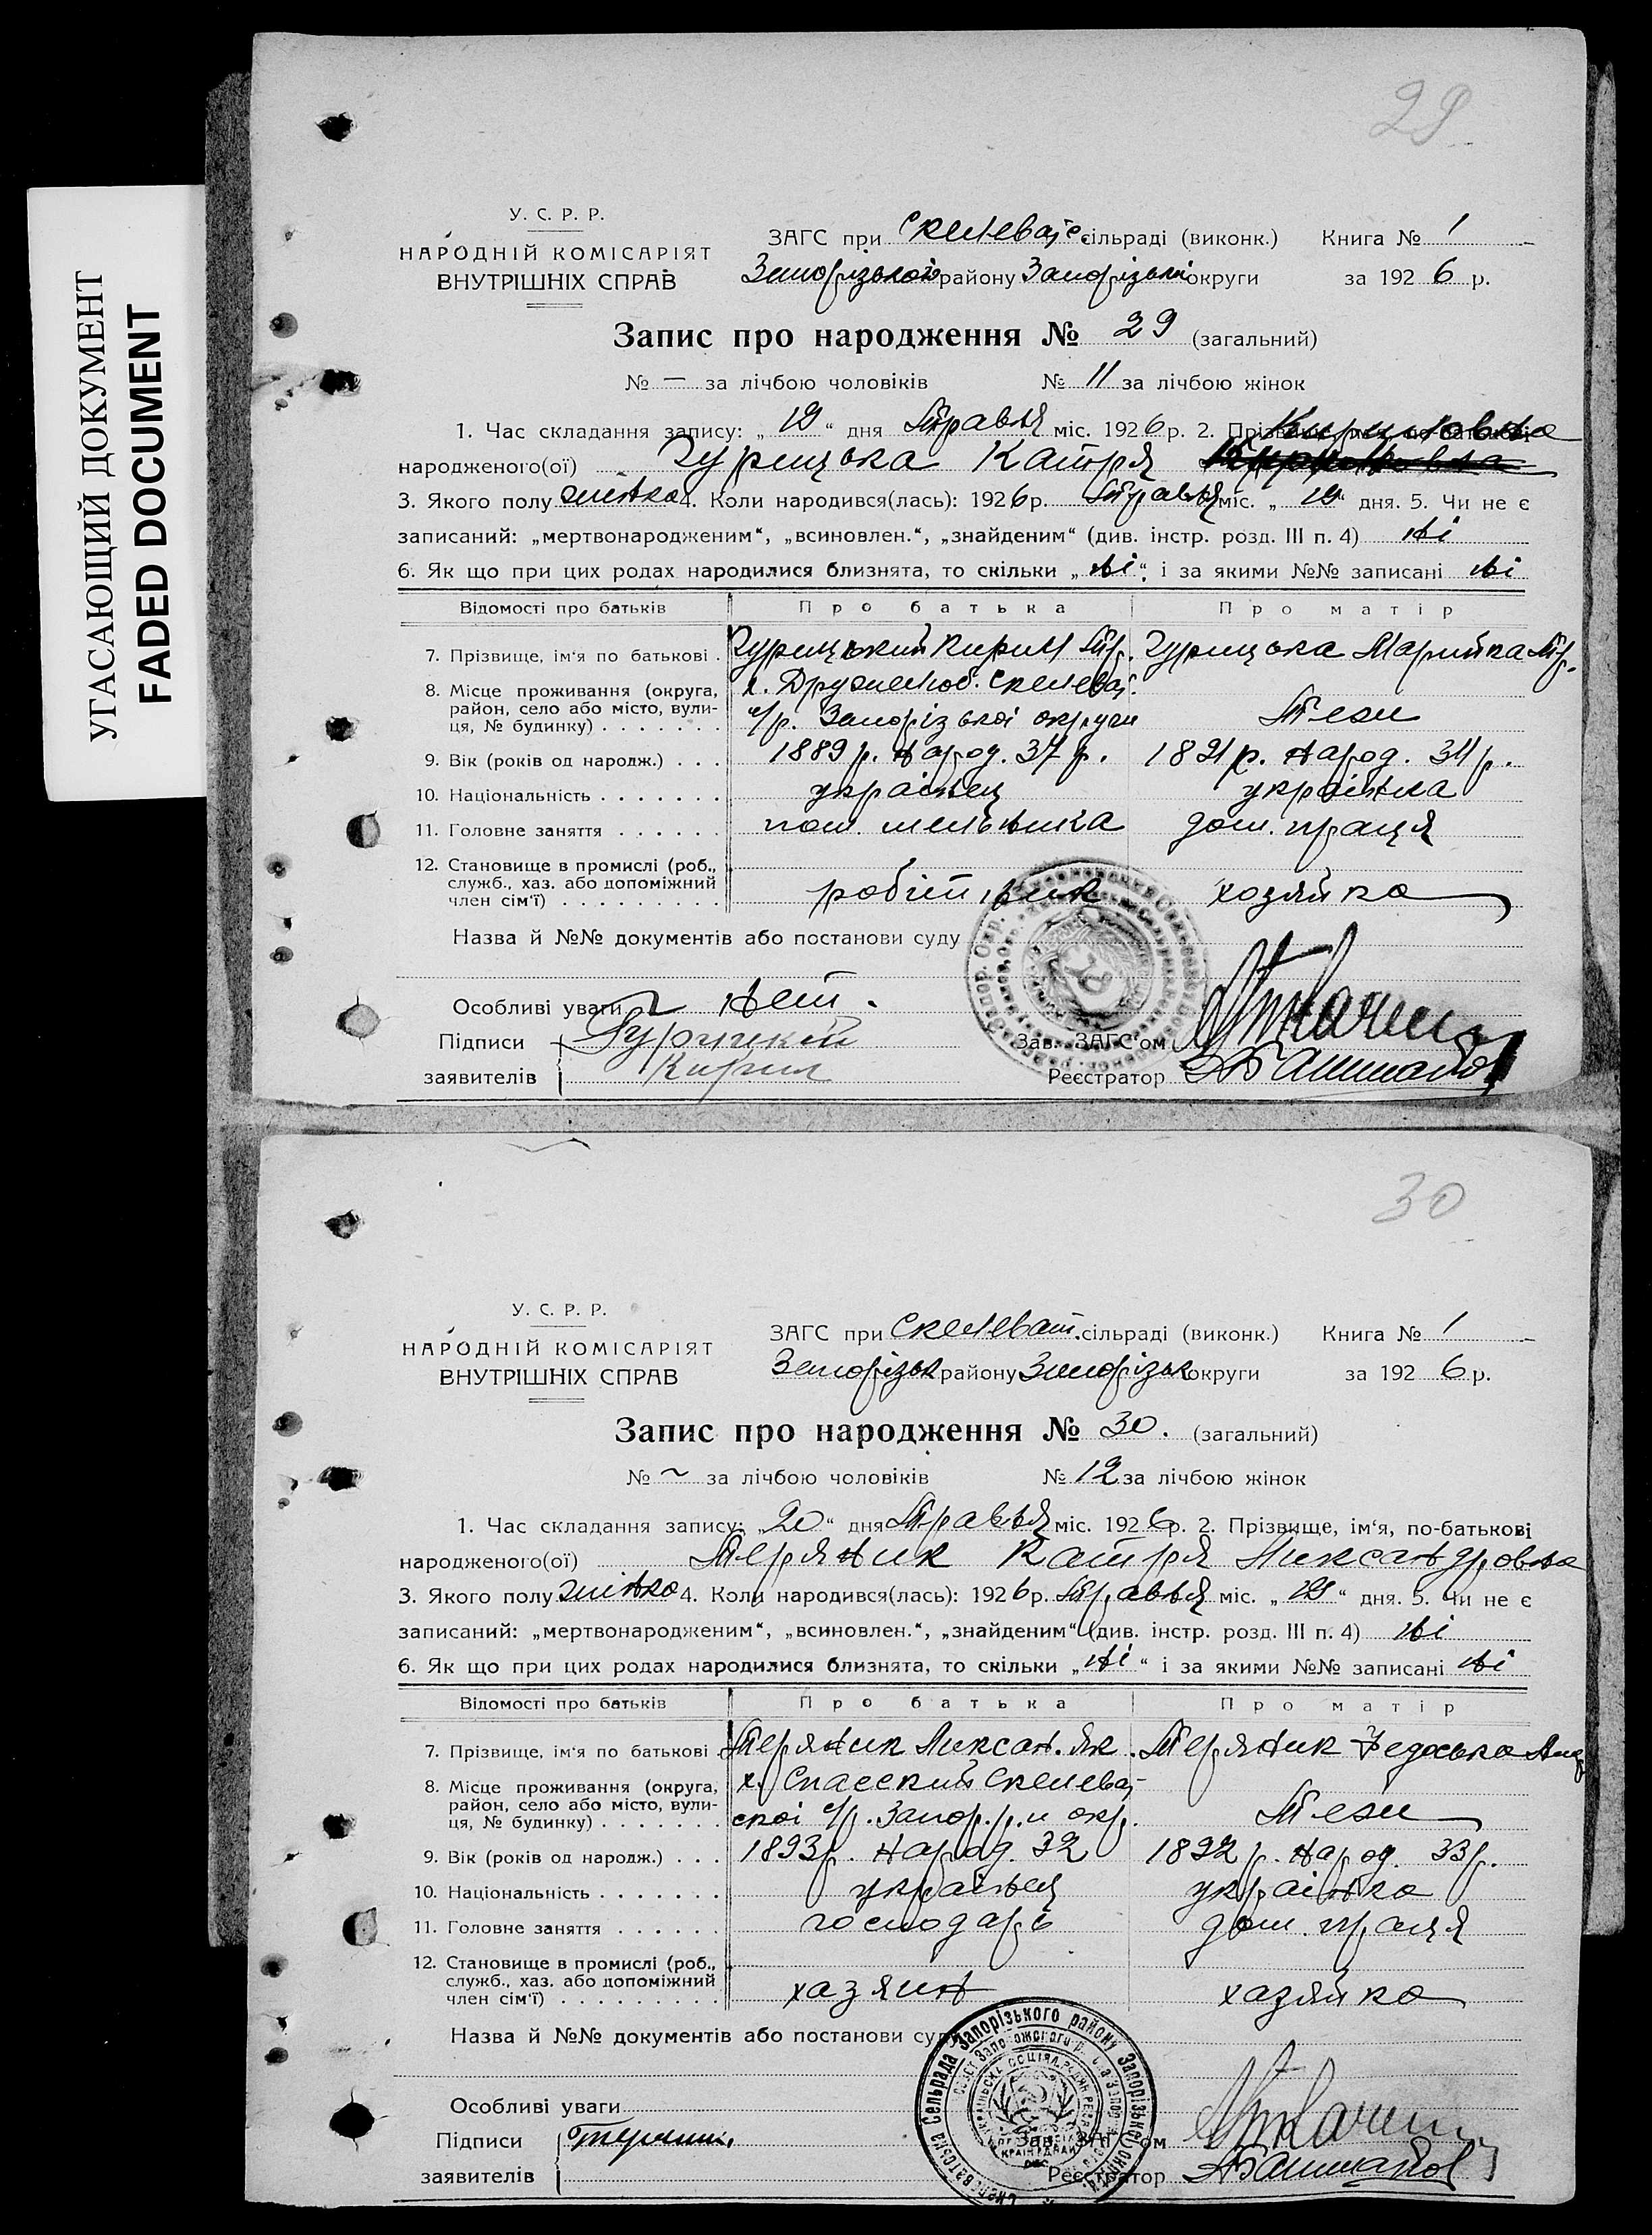 УГАСАЮЩИЙ ДОКУМЕНТ
FADED DOCUMENT
29
У. С. Р. Р.
НАРОДНІЙ КОМІСАРІЯТ
ВНУТРІШНІХ СПРАВ
ЗАГС при Скелеват. сільраді (виконк.) Книга № 1
Запорізької району Запорізької округи за 1926 р.
Запис про народження № 29 (загальний)
№ — за лічбою чоловіків № 11 за лічбою жінок
1. Час складання запису: „19“ дня Травня міс. 1926 р. 2. Прізвище, імя, по-батькові Кириловна
народженого(ої) Гурицька Катря
3. Якого полу жінка 4. Коли народився(лась): 1926 р. Травня міс. „19“ дня. 5. Чи не є
записаний: „мертвонародженим“, „всиновлен.“, „знайденим“ (див. інстр. розд. III п. 4) ні
6. Як що при цих родах народилися близнята, то скільки „ні“, і за якими №№ записані ні
Відомості про батьків Про батька Про матір
7. Прізвище, ім‘я по батькові . Гурицький Кирил Гр. Гурицька Марийка Гр.
8. Місце проживання (округа, район, село або місто, вулиця, № будинку) х. Дружелюб. Скелеват.
с/р. Запорізької округи Тези
9. Вік (років од народж.) . . . 1889 р. Народ. 37 р. 1891 р. Народ. 34 р.
10. Національність . . . . . . . українец українка
11. Головне заняття . . . . . . пом. мельника дом. праця
12. Становище в промислі (роб., служб., хаз. або допоміжний член сім‘ї) . . . . . . . . . робітник хозяйка
Назва й №№ документів або постанови суду
Особливі уваги нет.
Підписи Гурицкий Зав. ЗАГС‘ом
заявителів Кирил Реєстратор
30
У. С. Р. Р.
НАРОДНІЙ КОМІСАРІЯТ
ВНУТРІШНІХ СПРАВ
ЗАГС при Скелеват. сільраді (виконк.) Книга № 1
Запорізьк району Запорізьк округи за 1926 р.
Запис про народження № 30. (загальний)
№ ~ за лічбою чоловіків № 12 за лічбою жінок
1. Час складання запису: „20“ дня Травня міс. 1926 р. 2. Прізвище, ім‘я, по-батькові
народженого(ої) Тераник Катря Ликсандровна
3. Якого полу жінка 4. Коли народився(лась): 1926 р. Травня міс. „19“ дня. 5. Чи не є
записаний: „мертвонародженим“, „всиновлен.“, „знайденим“ (див. інстр. розд. III п. 4) ні
6. Як що при цих родах народилися близнята, то скільки „ні“ і за якими №№ записані ні
Відомості про батьків Про батька Про матір
7. Прізвище, ім‘я по батькові . Тераник Ликсан. Як. Тераник Федоська Анд
8. Місце проживання (округа, район, село або місто, вулиця, № будинку) х. Спасский Скелеват-
ської с/р. Запор. р. и окр. Тези
9. Вік (років од народж.) . . . 1893 р. Народ. 32 1892 р. Народ. 33 р.
10. Національність . . . . . . . українец українка
11. Головне заняття . . . . . . господарь дом. праця
12. Становище в промислі (роб., служб., хаз. або допоміжний член сім‘ї) . . . . . . . . . хазяин хазяйка
Назва й №№ документів або постанови суду
Особливі уваги
Підписи Зав. ЗАГС‘ом
заявителів Реєстратор
Скелеватська Сельрада Запорізького району Запорізької округи